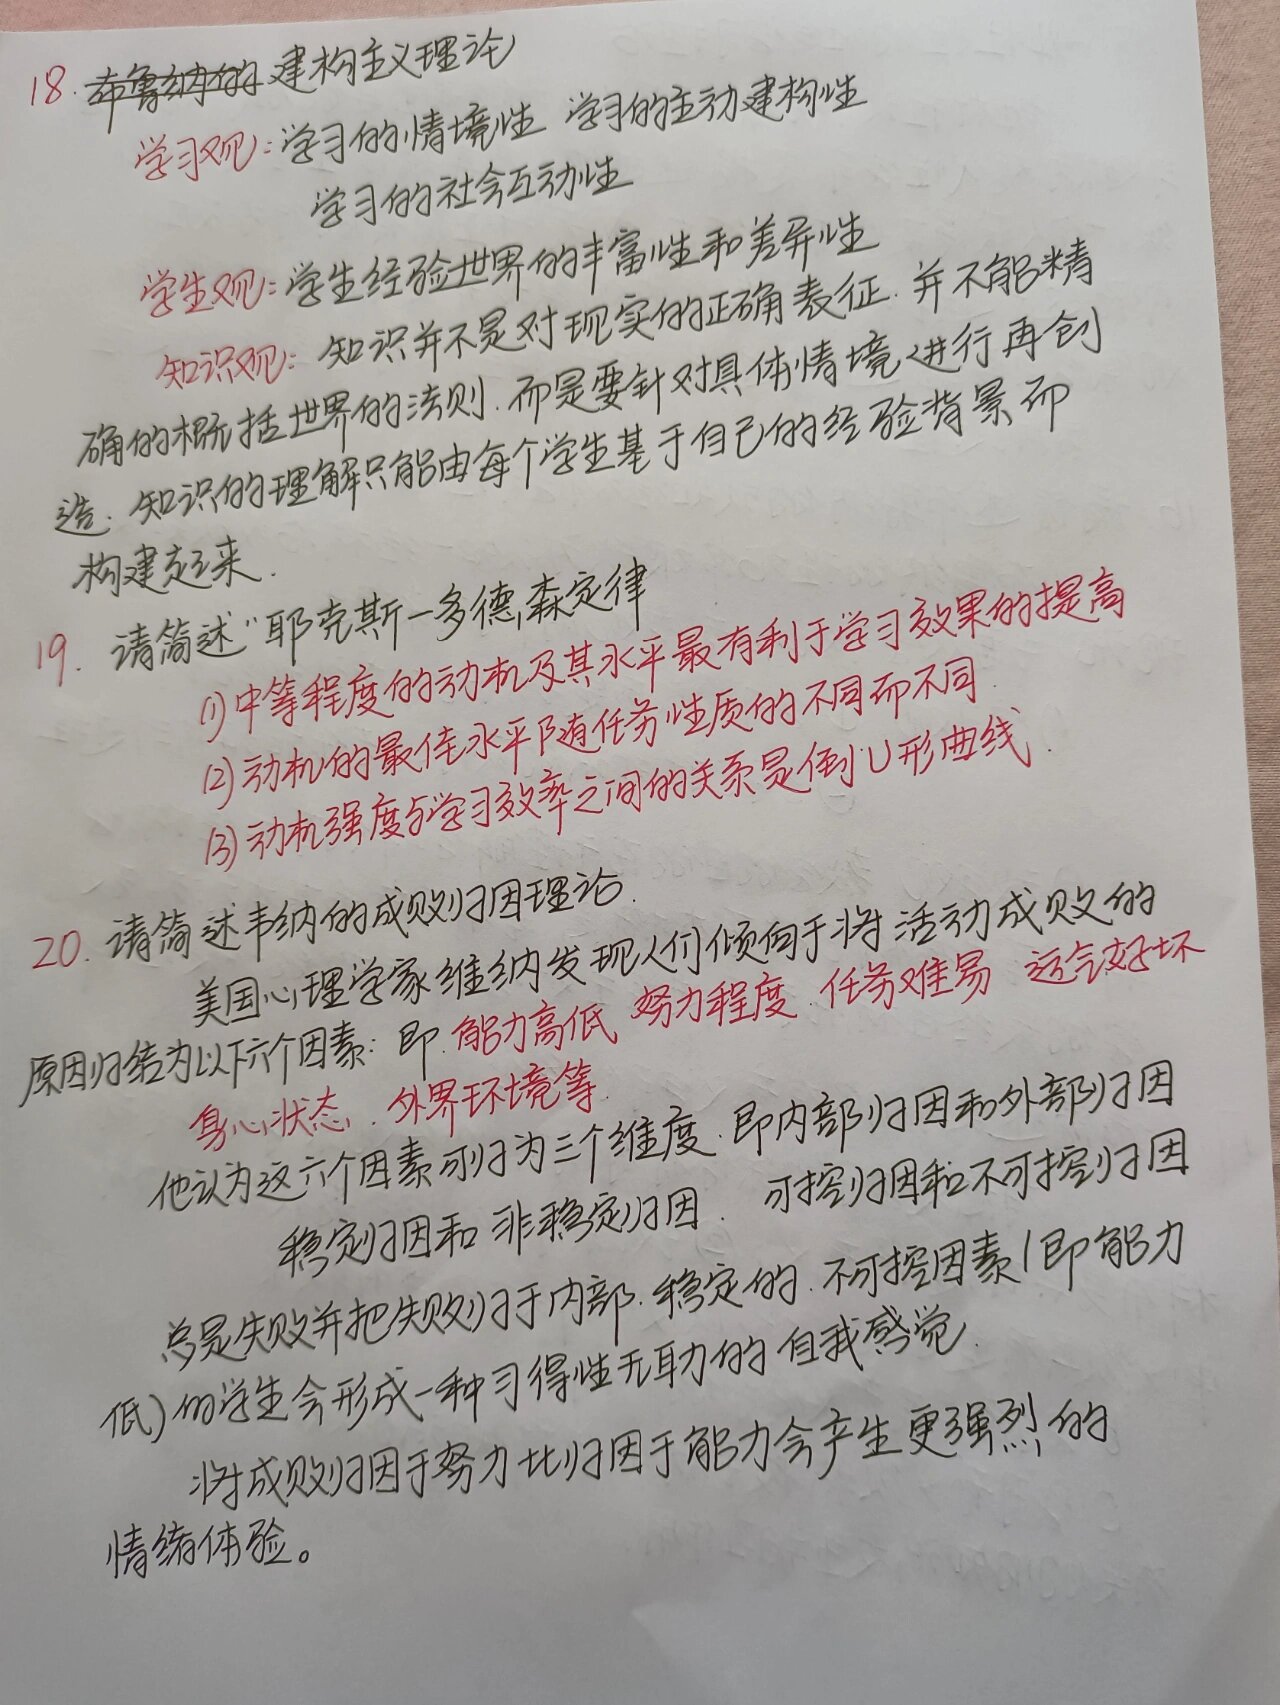 18. 布鲁纳的 建构主义理论
学习观: 学习的情境性 学习的主动建构性
学习的社会互动性
学生观: 学生经验世界的丰富性和差异性
知识观: 知识并不是对现实的正确表征. 并不能精
确的概括世界的法则. 而是要针对具体情境进行再创
造. 知识的理解只能由每个学生基于自己的经验背景而
构建起来.
19. 请简述"耶克斯-多德森定律
(1) 中等程度的动机及其水平最有利于学习效果的提高
(2) 动机的最佳水平随任务性质的不同而不同
(3) 动机强度与学习效率之间的关系是倒U形曲线.
20. 请简述韦纳的成败归因理论.
美国心理学家维纳发现人们倾向于将活动成败的
原因归结为以下六个因素: 即. 能力高低 努力程度. 任务难易 运气好坏
身心状态. 外界环境等.
他认为这六个因素可归为三个维度. 即内部归因和外部归因
稳定归因和非稳定归因. 可控归因和不可控归因
总是失败并把失败归于内部. 稳定的. 不可控因素(即能力
低)的学生会形成一种习得性无助的自我感觉.
将成败归因于努力比归因于能力会产生更强烈的
情绪体验。